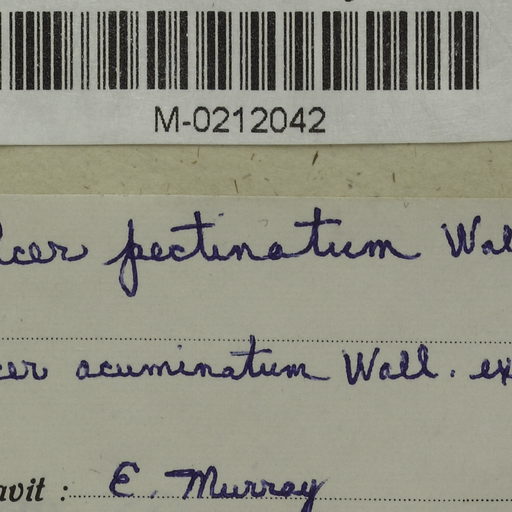 M-0212042
cer pectinatum Wal
cer acuminatum Wall. ex
avit : E. Murray